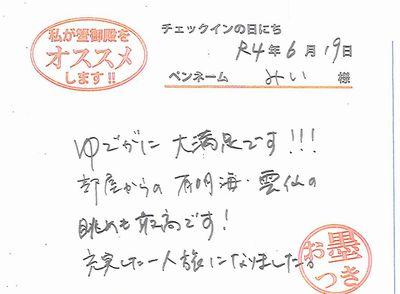 私が蟹御殿を
オススメ
します!!
チェックインの日にち
R4年6月19日
ペンネーム みい 様
ゆでがに 大満足です!!!
部屋からの 有明海・雲仙の
眺めも最高です!
充実した一人旅になりました。
お墨つき